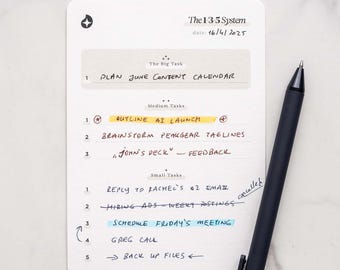 The 1·3·5 System
date: 16/4/2025
The Big Task
1 PLAN JUNE CONTENT CALENDAR
Medium Tasks
1 OUTLINE AI LAUNCH
2 BRAINSTORM PEAKGEAR TAGLINES
3 „JOHN'S DECK" — FEEDBACK
Small Tasks
1 REPLY TO RACHEL'S Q2 EMAIL
2 HIRING ADS - WEEKLY POSTINGS
3 SCHEDULE FRIDAY'S MEETING
4 GREG CALL
5 → BACK UP FILES ←